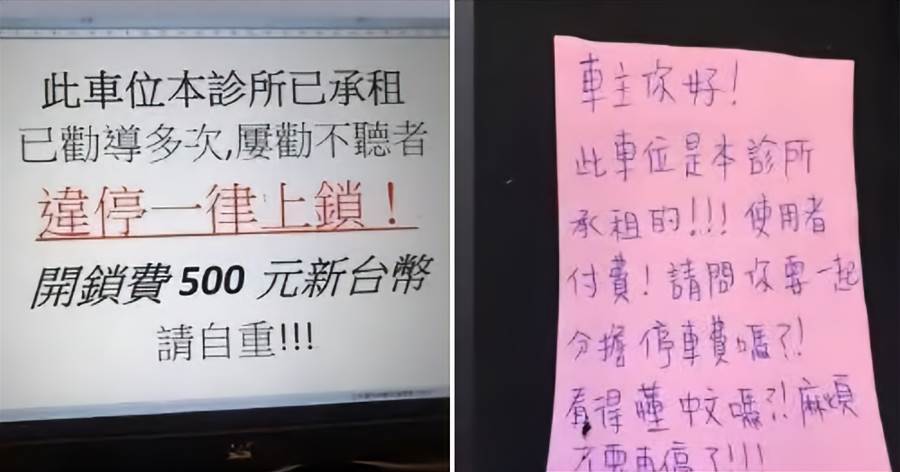 此車位本診所已承租
已勸導多次,屢勸不聽者
違停一律上鎖！
開鎖費 500 元新台幣
請自重!!!
車主你好!
此車位是本診所
承租的!!! 使用者
付費! 請問你要一起
分擔停車費嗎?!
看得懂中文嗎?! 麻煩
不要再停了!!!